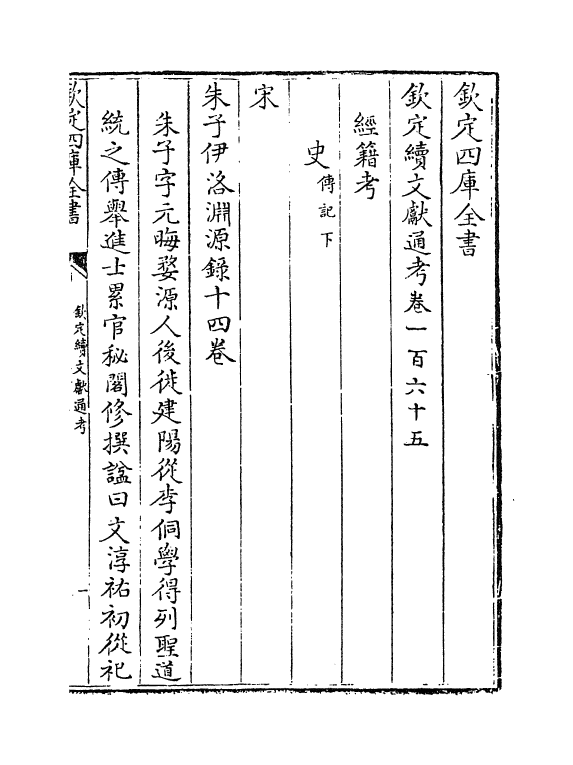 欽定四庫全書
欽定續文獻通考卷一百六十五
經籍考
史傳記下
宋
朱子伊洛淵源錄十四卷
朱子字元晦婺源人後徙建陽從李侗學得列聖道
統之傳舉進士累官秘閣修撰諡曰文淳祐初從祀
欽定四庫全書
欽定續文獻通考
一